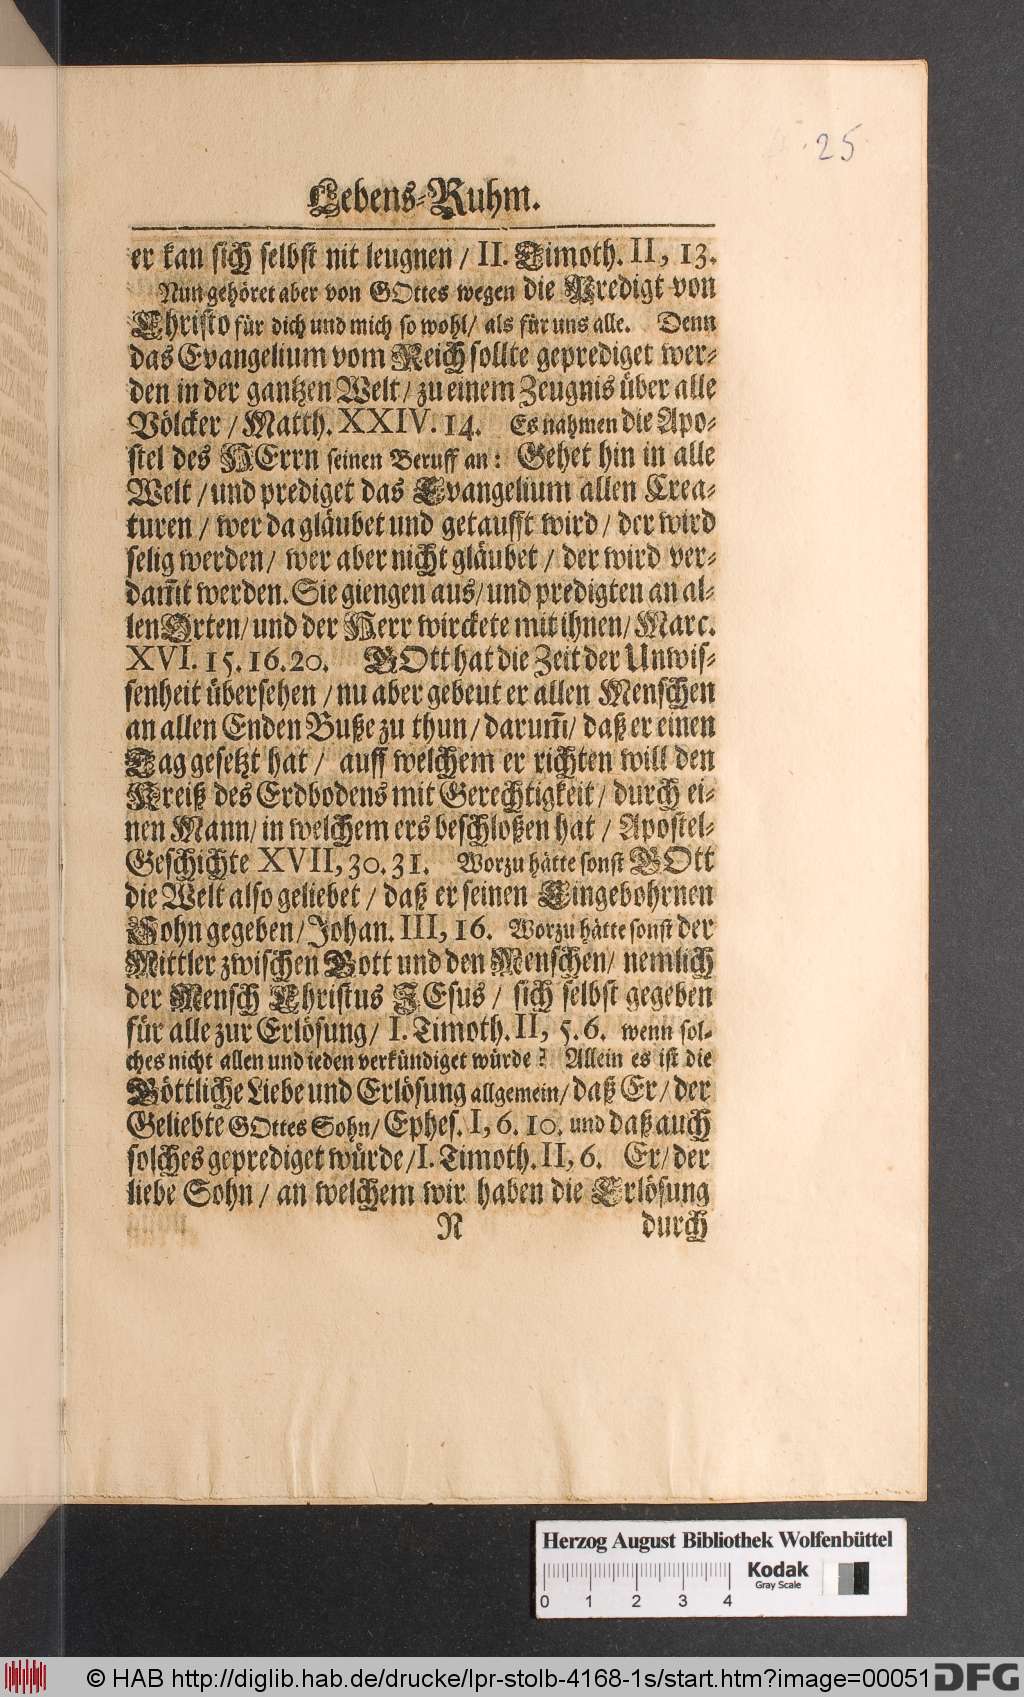 25
Lebens-Ruhm.
er kan sich selbst nit leugnen / II. Timoth. II, 13.
Nun gehöret aber von GOttes wegen die Predigt von
Christo für dich und mich so wohl / als für uns alle. Denn
das Evangelium vom Reich sollte geprediget wer-
den in der gantzen Welt / zu einem Zeugnis über alle
Völcker / Matth. XXIV. 14. Es nahmen die Apo-
stel des HErrn seinen Beruff an: Gehet hin in alle
Welt / und prediget das Evangelium allen Crea-
turen / wer da gläubet und getaufft wird / der wird
selig werden / wer aber nicht gläubet / der wird ver-
dam̄t werden. Sie giengen aus / und predigten an al-
len Orten / und der Herr wirckete mit ihnen / Marc.
XVI. 15. 16. 20. GOtt hat die Zeit der Unwis-
senheit übersehen / nu aber gebeut er allen Menschen
an allen Enden Buße zu thun / darum̄ / daß er einen
Tag gesetzt hat / auff welchem er richten will den
Kreiß des Erdbodens mit Gerechtigkeit / durch ei-
nen Mann / in welchem ers beschloßen hat / Apostel-
Geschichte XVII, 30. 31. Worzu hätte sonst GOtt
die Welt also geliebet / daß er seinen Eingebohrnen
Sohn gegeben / Johan. III, 16. Worzu hätte sonst der
Mittler zwischen Gott und den Menschen / nemlich
der Mensch Christus JEsus / sich selbst gegeben
für alle zur Erlösung / I. Timoth. II, 5. 6. wenn sol-
ches nicht allen und ieden verkündiget würde? Allein es ist die
Göttliche Liebe und Erlösung allgemein / daß Er / der
Geliebte GOttes Sohn / Ephes. I, 6. 10. und daß auch
solches geprediget würde / I. Timoth. II, 6. Er / der
liebe Sohn / an welchem wir haben die Erlösung
N durch
Herzog August Bibliothek Wolfenbüttel
0 1 2 3 4
Kodak
Gray Scale
© HAB http://diglib.hab.de/drucke/lpr-stolb-4168-1s/start.htm?image=00051
DFG